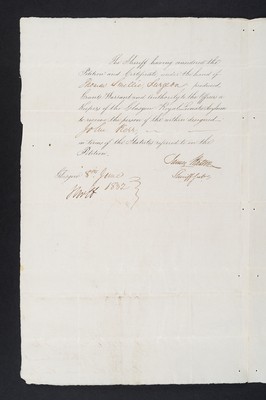 The Sheriff having considered the
Petition and Certificate under the hand of
Surgeon produced,
Grants Warrant and Authority to the Officers &
Keepers of the Glasgow Royal Lunatic Asylum
to receive the person of the within designed
John Kerr
in terms of the Statute referred to in the
Petition.
Glasgow 8th June
1832